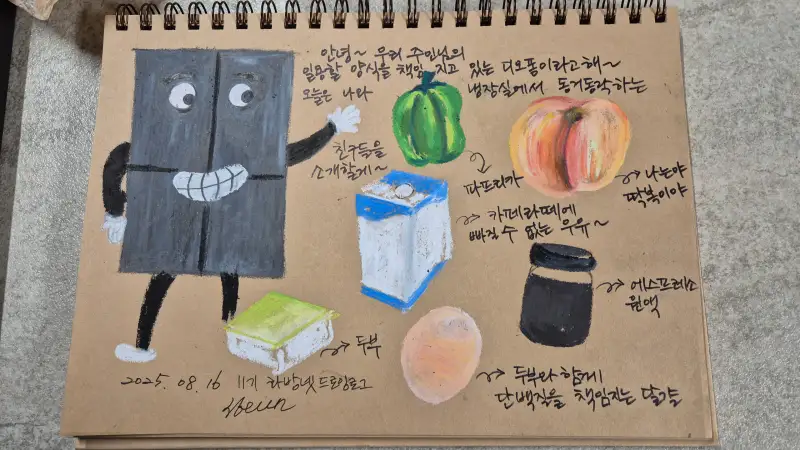 안녕~ 우리 주인님의
일용할 양식을 책임 지고 있는 디오퐁이라고해~
오늘은 나와 냉장실에서 동거동락하는
친구들을
소개할게~
파프리카
나는야
딱복이야
카페라떼에
빠질 수 없는 우유~
에스프레소
원액
두부
두부와 함께
단백질을 책임지는 달걀
2025. 08. 16 11기 하방넷드로잉로그